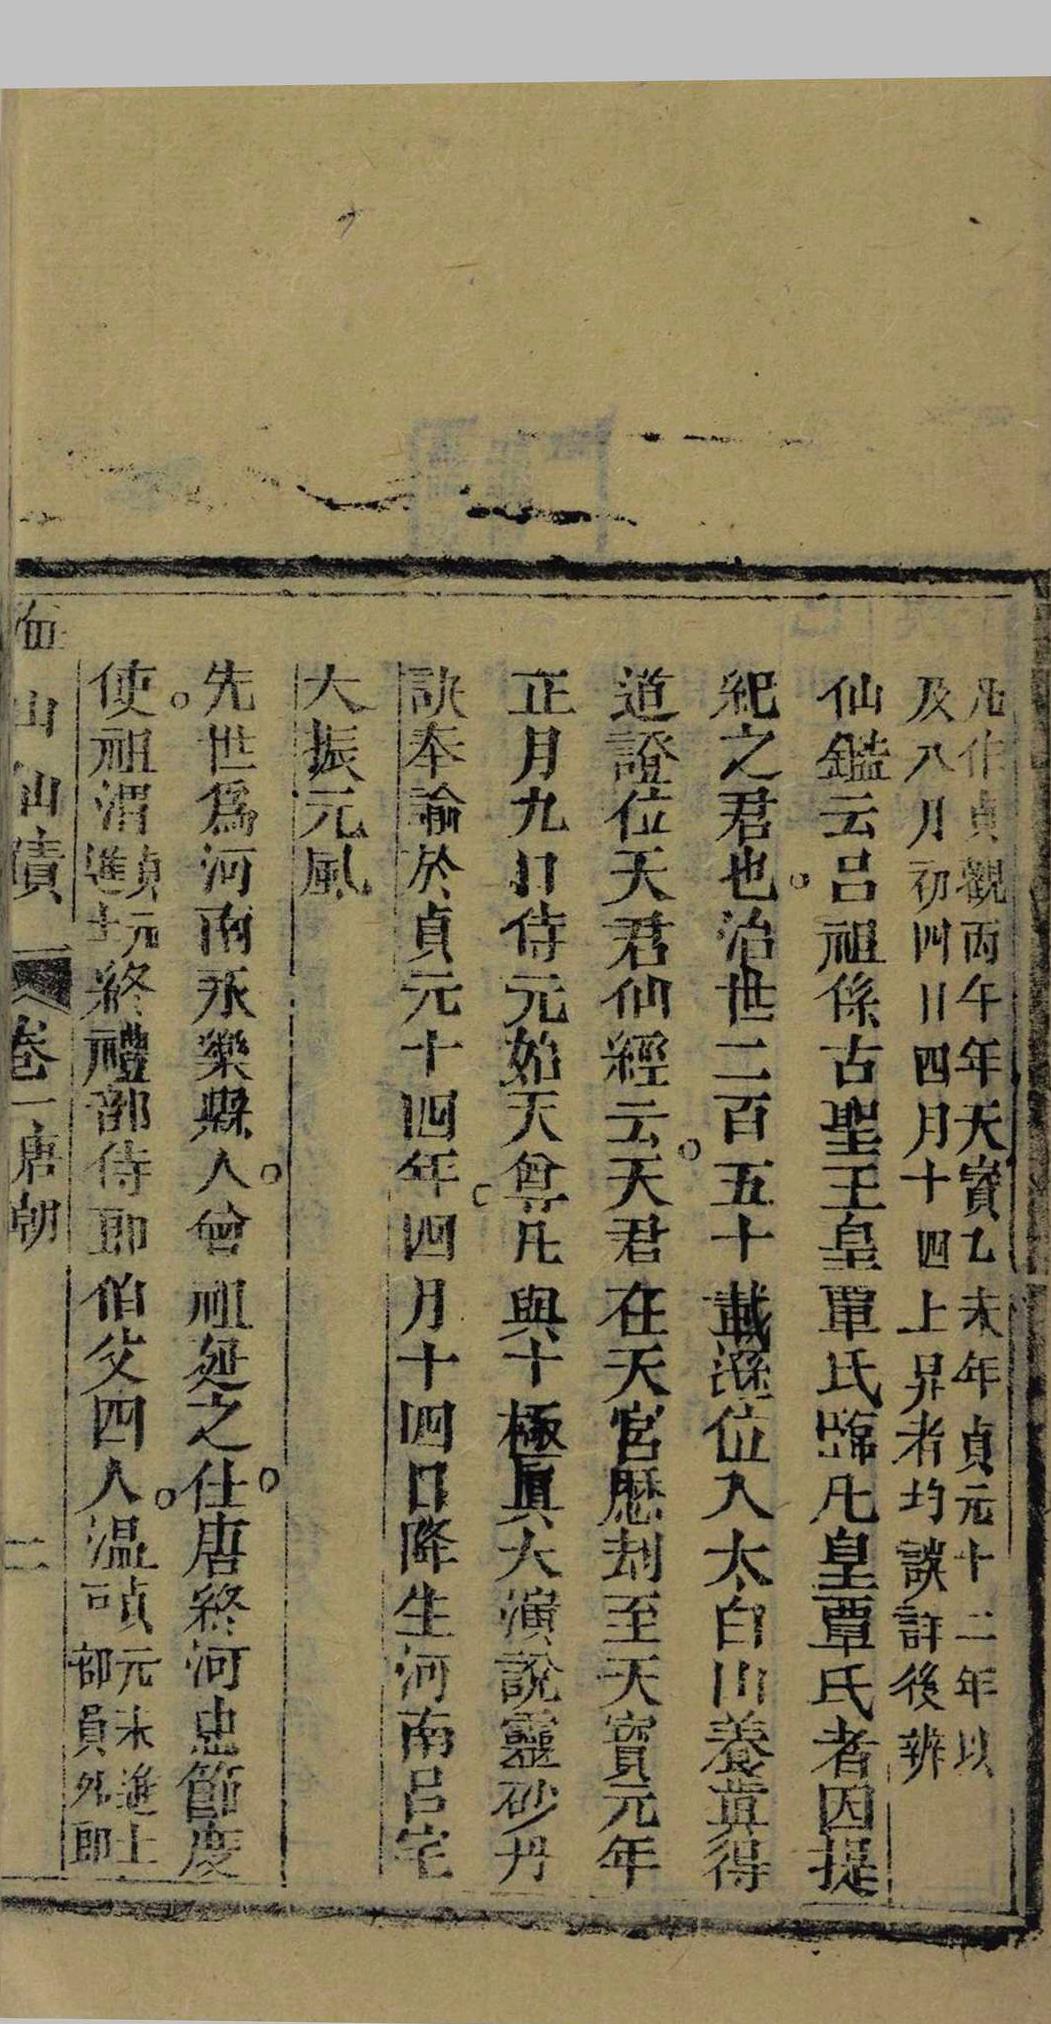 凡作貞觀丙午年天寳乙未年貞元十二年以
及八月初四日四月十四上昇者均誤詳後辨
仙鑑云呂祖係古聖王皇覃氏臨凡皇覃氏者因提
紀之君也治世二百五十載遜位入太白山養眞得
道證位天君仙經云天君在天宮歷刼至天寳元年
正月九日侍元始天尊凡與十極眞大演說靈砂丹
訣奉諭於貞元十四年四月十四日降生河南呂宅
大振元風
先世爲河南永樂縣人曾祖延之仕唐終河忠節度
使祖渭貞元進士終禮部侍郎伯父四人溫貞元末進士部員外郎
山仙蹟 卷一唐朝 二